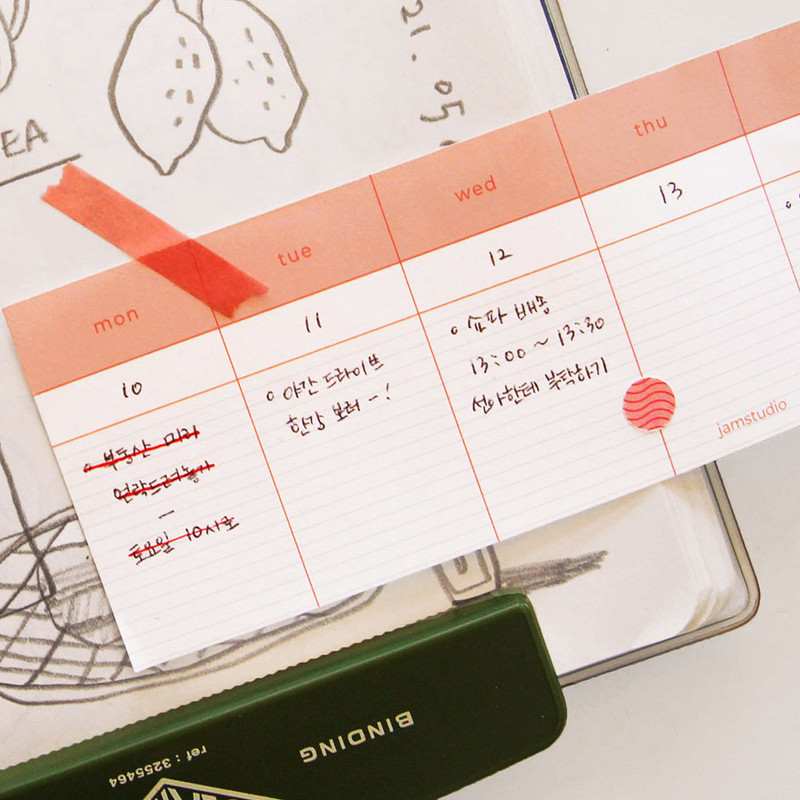 21.05.
EA
mon
tue
wed
thu
10
11
12
13
부동산 미리
연락드려놓기
–
토요일 10시로
야간 드라이브
한강 보러 ~!
쇼파 배송
13:00 ~ 13:30
선아한테 부탁하기
jamstudio
BINDING
ref : 3255464